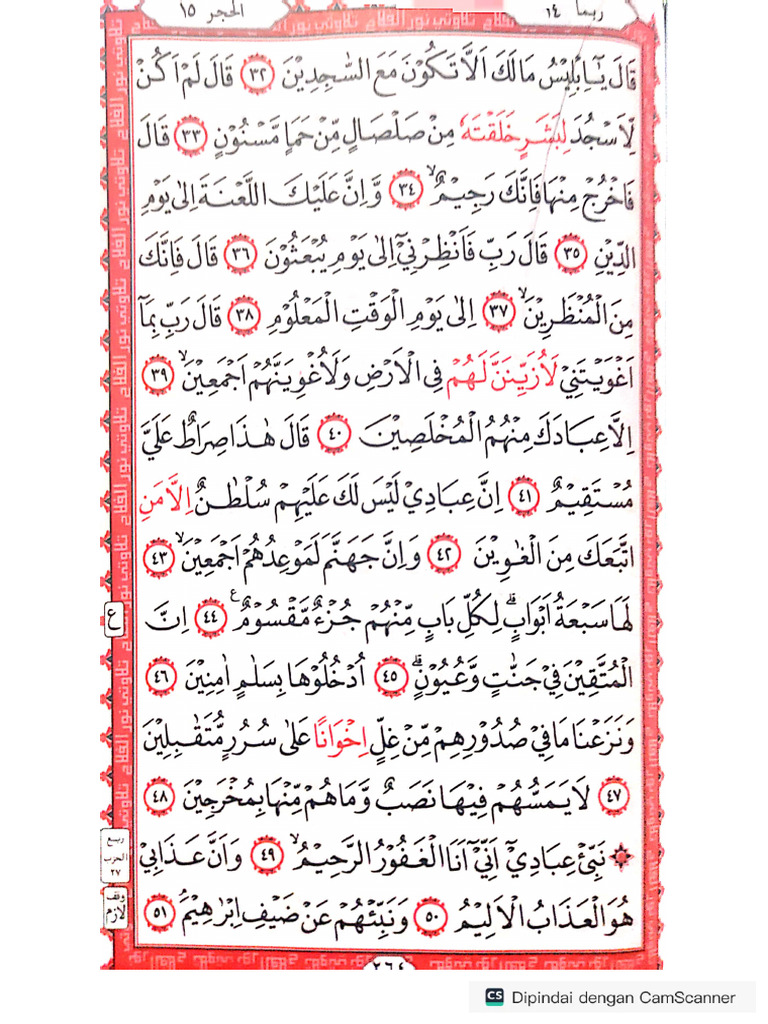 الحجر ١٥
ربما ١٤
قَالَ يٰٓاِبْلِيْسُ مَا لَكَ اَلَّا تَكُوْنَ مَعَ السّٰجِدِيْنَ ٣٢ قَالَ لَمْ اَكُنْ
لِّاَسْجُدَ لِبَشَرٍ خَلَقْتَهٗ مِنْ صَلْصَالٍ مِّنْ حَمَاٍ مَّسْنُوْنٍ ٣٣ قَالَ
فَاخْرُجْ مِنْهَا فَاِنَّكَ رَجِيْمٌۙ ٣٤ وَّاِنَّ عَلَيْكَ اللَّعْنَةَ اِلٰى يَوْمِ
الدِّيْنِ ٣٥ قَالَ رَبِّ فَاَنْظِرْنِيْٓ اِلٰى يَوْمِ يُبْعَثُوْنَ ٣٦ قَالَ فَاِنَّكَ
مِنَ الْمُنْظَرِيْنَۙ ٣٧ اِلٰى يَوْمِ الْوَقْتِ الْمَعْلُوْمِ ٣٨ قَالَ رَبِّ بِمَآ
اَغْوَيْتَنِيْ لَاُزَيِّنَنَّ لَهُمْ فِى الْاَرْضِ وَلَاُغْوِيَنَّهُمْ اَجْمَعِيْنَۙ ٣٩
اِلَّا عِبَادَكَ مِنْهُمُ الْمُخْلَصِيْنَ ٤٠ قَالَ هٰذَا صِرَاطٌ عَلَيَّ
مُسْتَقِيْمٌ ٤١ اِنَّ عِبَادِيْ لَيْسَ لَكَ عَلَيْهِمْ سُلْطٰنٌ اِلَّا مَنِ
اتَّبَعَكَ مِنَ الْغٰوِيْنَ ٤٢ وَاِنَّ جَهَنَّمَ لَمَوْعِدُهُمْ اَجْمَعِيْنَۙ ٤٣
لَهَا سَبْعَةُ اَبْوَابٍۗ لِكُلِّ بَابٍ مِّنْهُمْ جُزْءٌ مَّقْسُوْمٌ ࣖ ٤٤ اِنَّ
ع
الْمُتَّقِيْنَ فِيْ جَنّٰتٍ وَّعُيُوْنٍۗ ٤٥ اُدْخُلُوْهَا بِسَلٰمٍ اٰمِنِيْنَ ٤٦
وَنَزَعْنَا مَا فِيْ صُدُوْرِهِمْ مِّنْ غِلٍّ اِخْوَانًا عَلٰى سُرُرٍ مُّتَقٰبِلِيْنَ
٤٧ لَا يَمَسُّهُمْ فِيْهَا نَصَبٌ وَّمَا هُمْ مِّنْهَا بِمُخْرَجِيْنَ ٤٨
۞ نَبِّئْ عِبَادِيْٓ اَنِّيْٓ اَنَا الْغَفُوْرُ الرَّحِيْمُۙ ٤٩ وَاَنَّ عَذَابِيْ
ربع
الحزب
٢٧
هُوَ الْعَذَابُ الْاَلِيْمُ ٥٠ وَنَبِّئْهُمْ عَنْ ضَيْفِ اِبْرٰهِيْمَۘ ٥١
وقف
لازم
٢٦٤
CS Dipindai dengan CamScanner